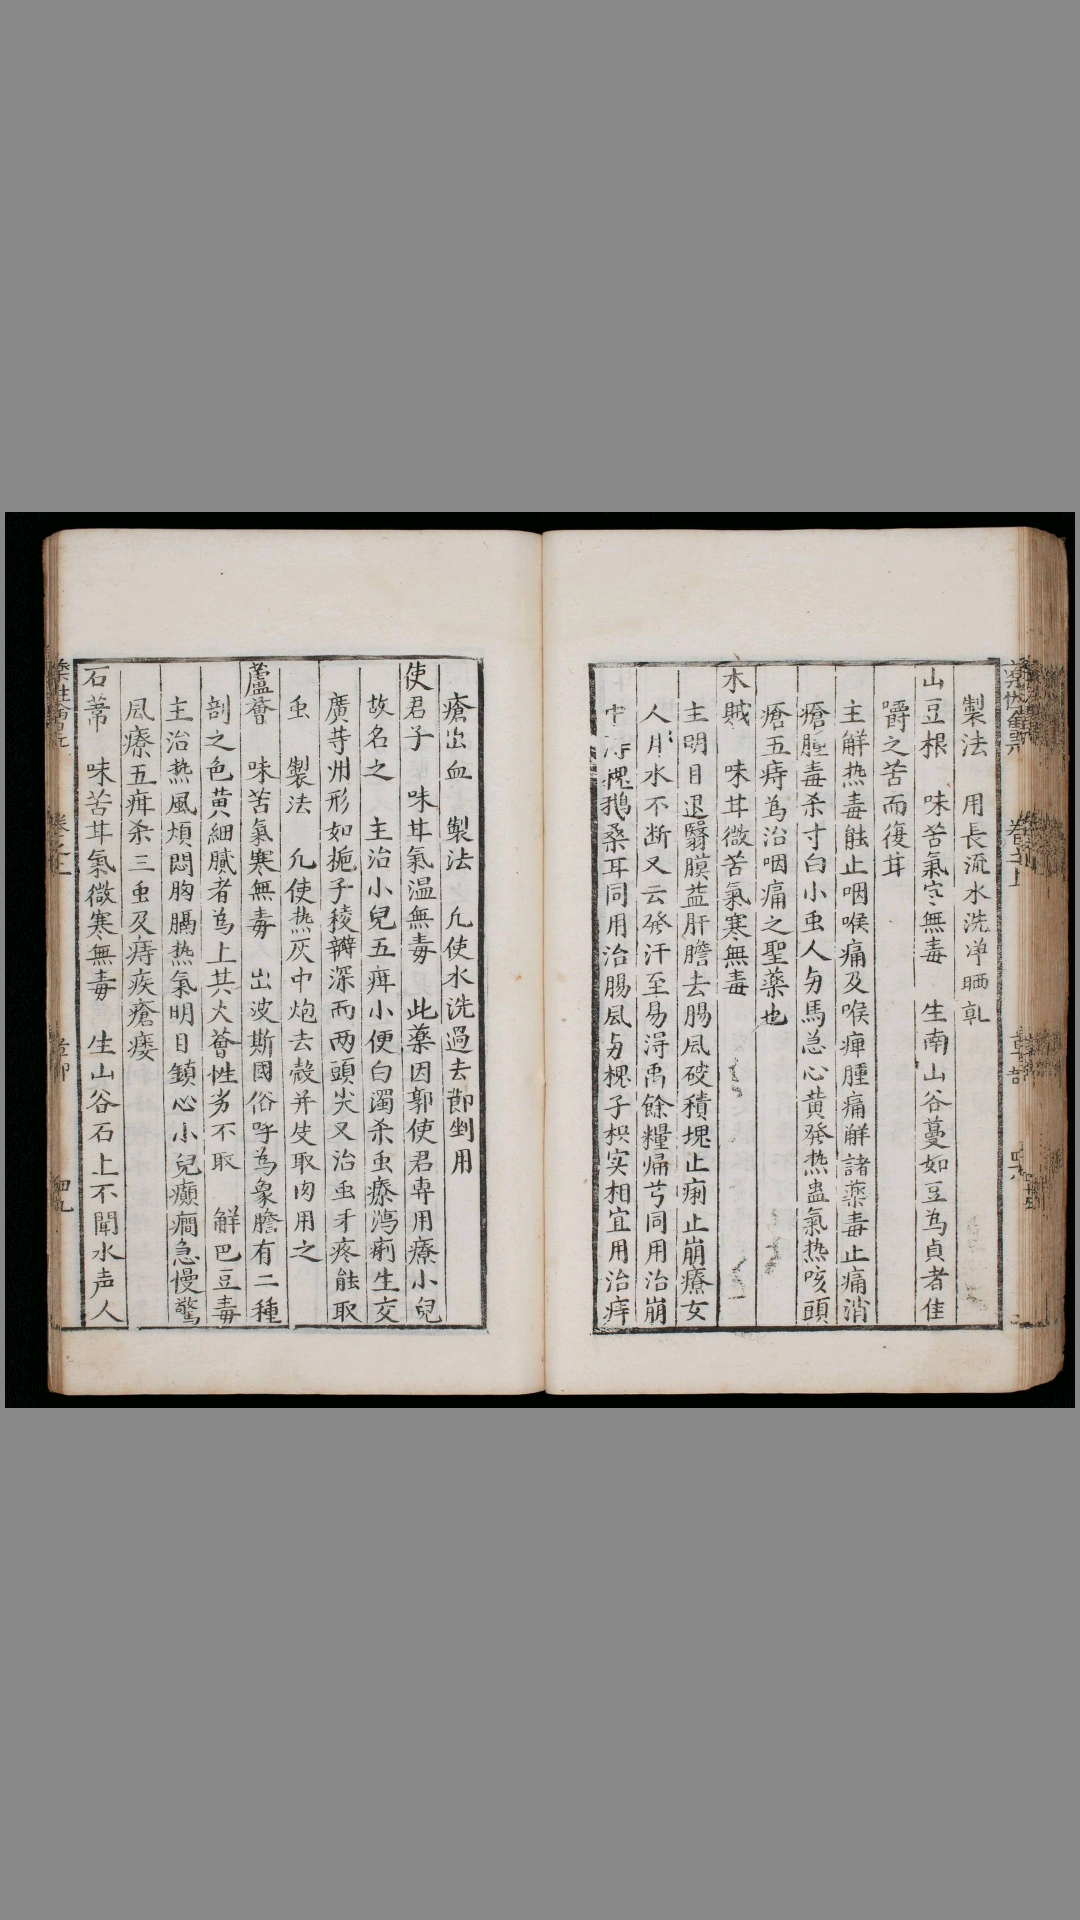 製法　用長流水洗淨晒乹
山豆根　味苦氣寒無毒　生南山谷蔓如豆為貞者佳
嚼之苦而復苷
主觧热毒能止咽喉痛及喉痺腫痛觧諸藥毒止痛消
瘡腫毒杀寸白小虫人与馬急心黄發热蛊氣热咳頭
瘡五痔為治咽痛之聖藥也
木賊　味甘微苦氣寒無毒
主明目退翳膜益肝膽去腸風破積塊止痢止崩療女
人月水不断又云發汗至易淂禹餘糧歸芎同用治崩
中　槐鵝桑耳同用治腸風与槐子枳实相宜用治痔
瘡出血　製法　凢使水洗過去節剉用
使君子　味甘氣温無毒　此藥因郭使君專用療小兒
故名之　主治小兒五疳小便白濁杀虫療瀉痢生交
廣䓁州形如梔子稜瓣深而两頭尖又治虫牙疼能取
虫　製法　凢使热灰中炮去殻并皮取肉用之
蘆薈　味苦氣寒無毒　出波斯國俗呼為象膽有二種
剖之色黄細膩者為上其大薈性劣不取　觧巴豆毒
主治热風煩悶胸膈热氣明目鎮心小兒癲癇急慢驚
風療五疳杀三虫及痔疾瘡瘻
石葦　味苦甘氣微寒無毒　生山谷石上不聞水声人